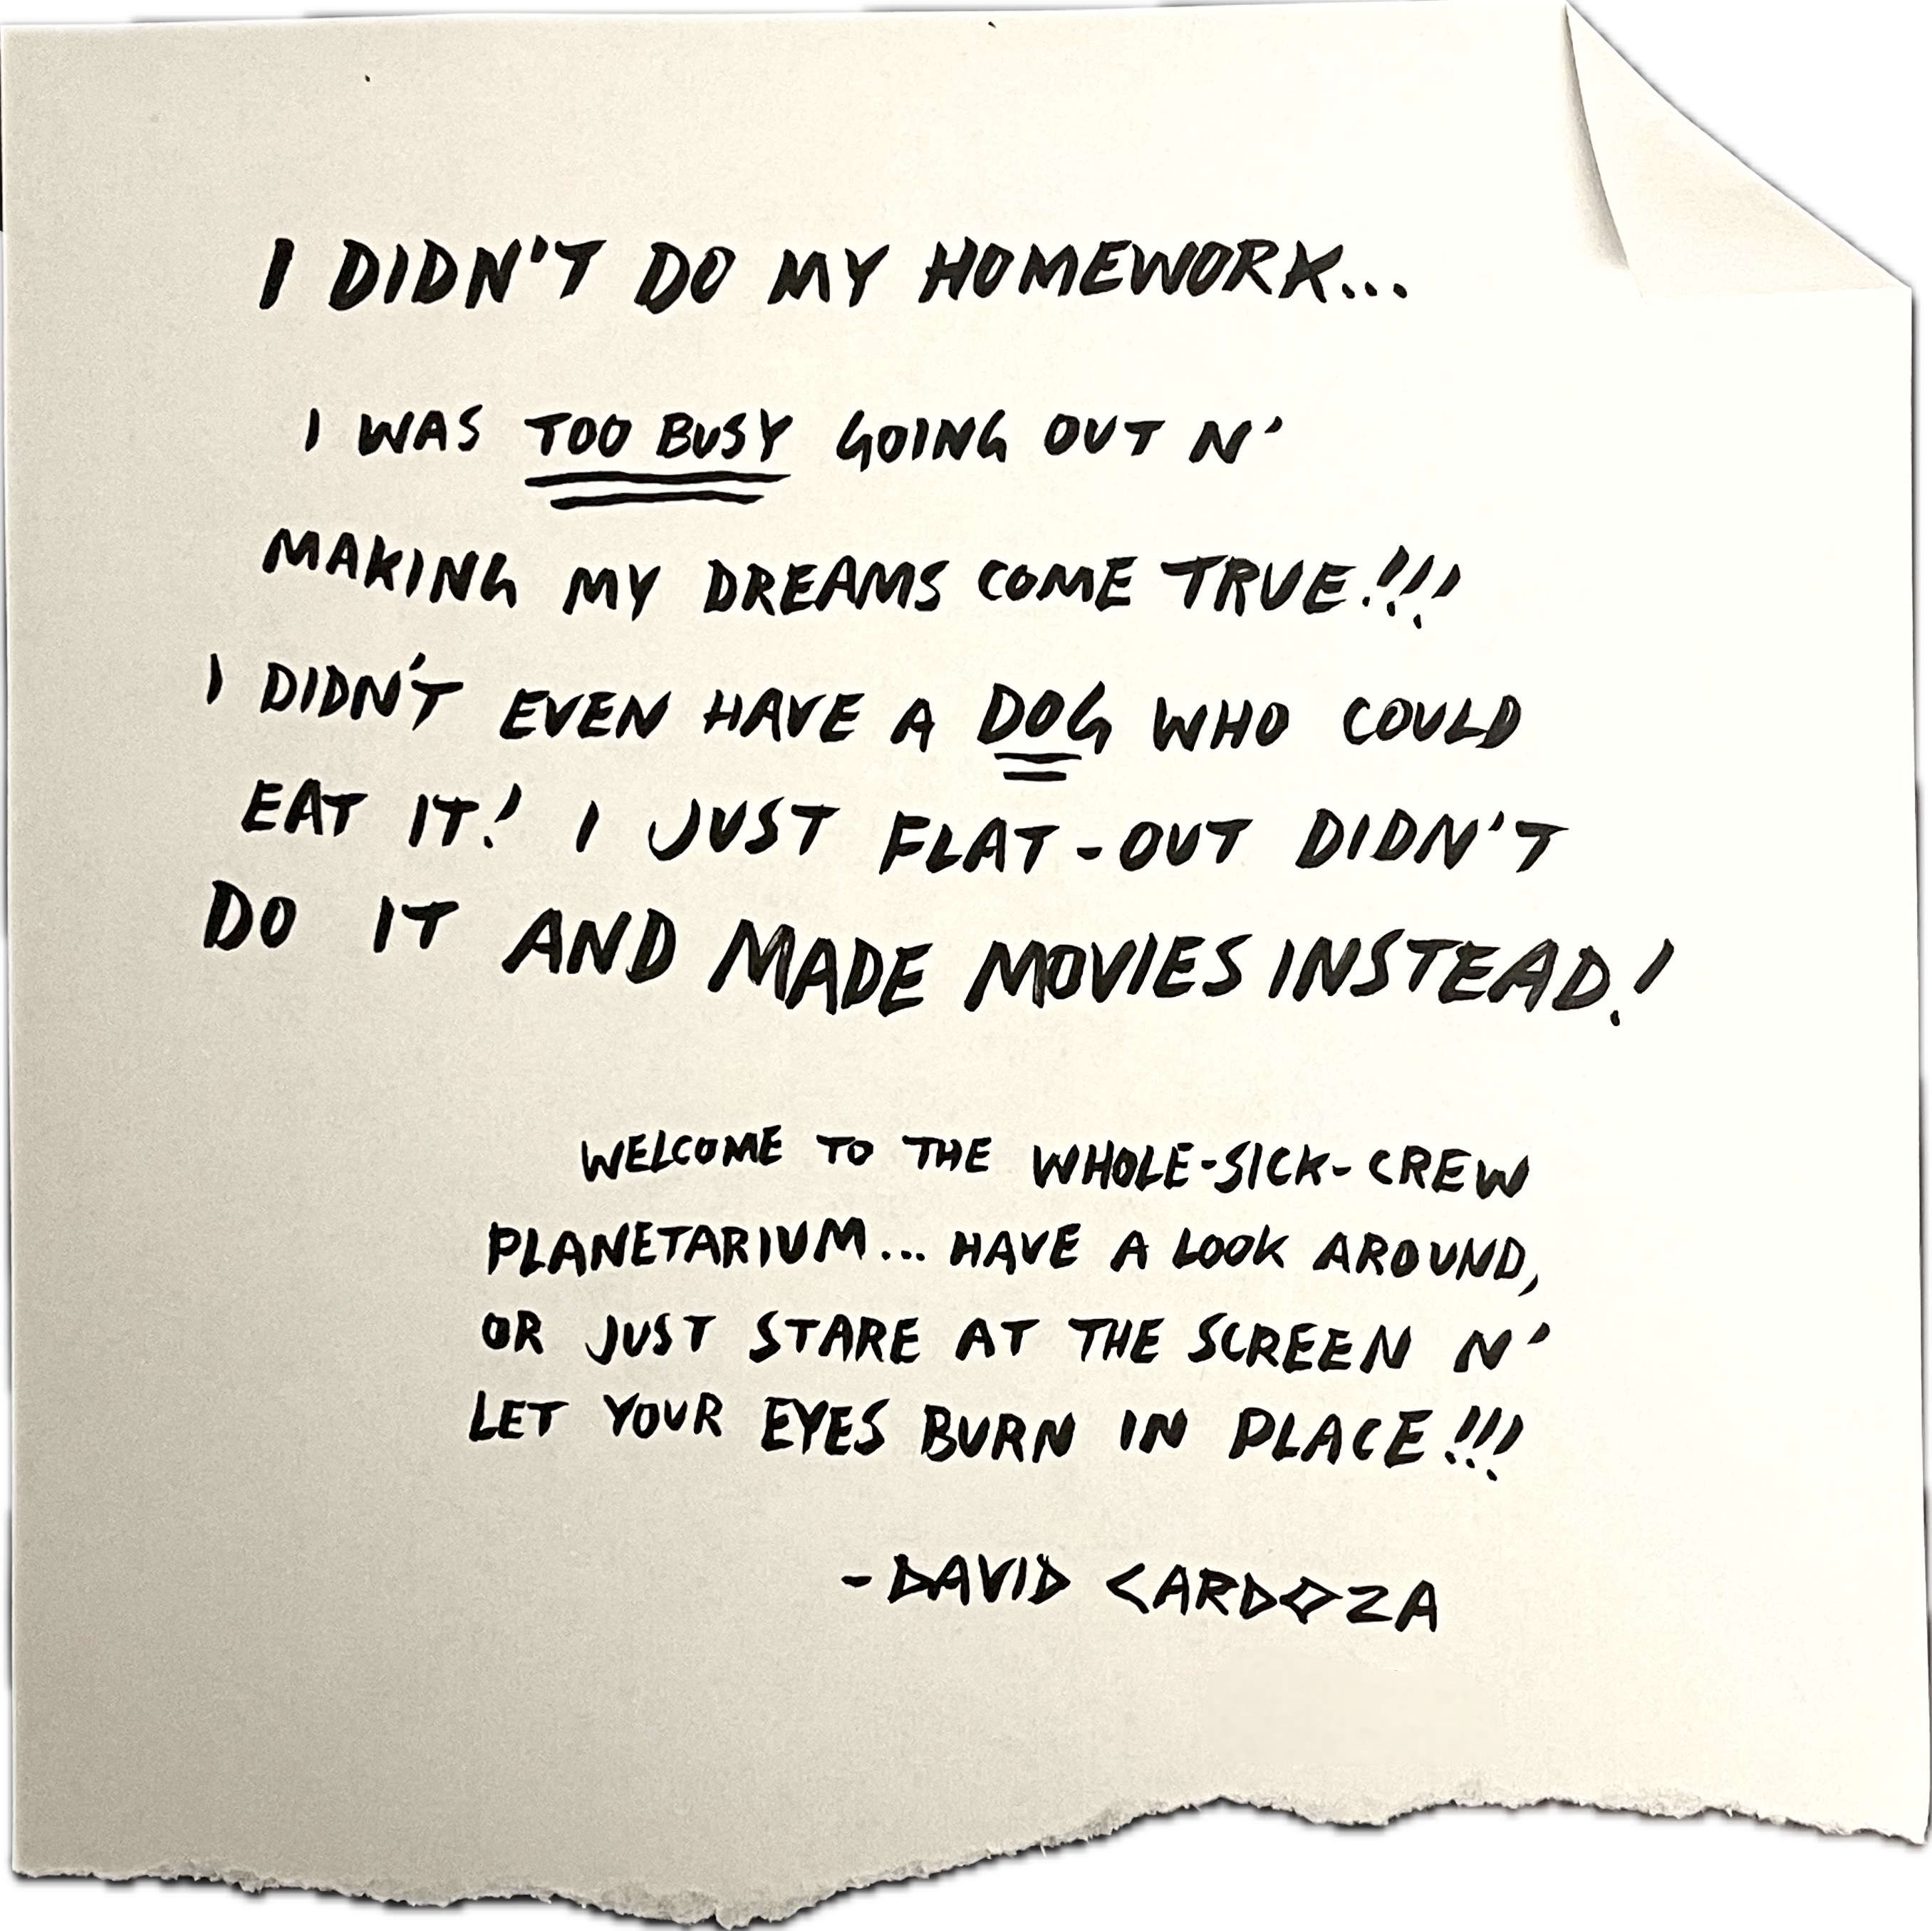 I DIDN'T DO MY HOMEWORK...
I WAS TOO BUSY GOING OUT N'
MAKING MY DREAMS COME TRUE!!!
I DIDN'T EVEN HAVE A DOG WHO COULD
EAT IT! I JUST FLAT-OUT DIDN'T
DO IT AND MADE MOVIES INSTEAD!
WELCOME TO THE WHOLE-SICK-CREW
PLANETARIUM... HAVE A LOOK AROUND,
OR JUST STARE AT THE SCREEN N'
LET YOUR EYES BURN IN PLACE!!!
-DAVID CARDOZA